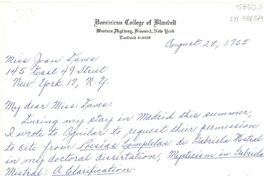 Dominican College of Blauvelt
Western Highway, Blauvelt, New York
August 20, 1965
Miss Joan Daves
145 East 49 Street
New York 17, N.Y.
My dear Miss Daves:
During my stay in Madrid this summer,
I wrote to Aguilar to request their permission
to cite from Poesías Completas de Gabriela Mistral
in my doctoral dissertation, Mysticism in Gabriela
Mistral: A Clarification.